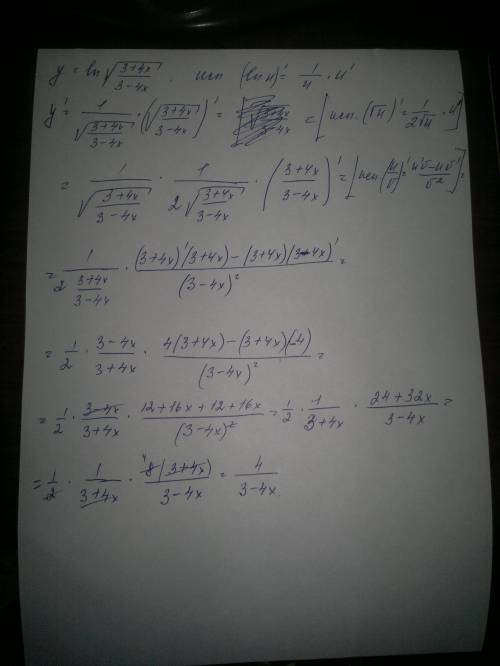 y = ln√((3+4x)/(3-4x)) . исп (ln u)' = 1/u · u'
y' = 1/√((3+4x)/(3-4x)) · (√((3+4x)/(3-4x)))' = = [исп. (√u)' = 1/(2√u) · u']
= 1/√((3+4x)/(3-4x)) · 1/(2√((3+4x)/(3-4x))) · ((3+4x)/(3-4x))' = [исп (u/v)' = (u'v-uv')/v²] =
= 1/(2 (3+4x)/(3-4x)) · ((3+4x)'(3+4x) - (3+4x)(3-4x)')/(3-4x)² =
= 1/2 · (3-4x)/(3+4x) · (4(3+4x) - (3+4x)(-4))/(3-4x)² =
= 1/2 · (3-4x)/(3+4x) · (12+16x+12+16x)/(3-4x)² = 1/2 · 1/(3+4x) · (24+32x)/(3-4x) =
= 1/2 · 1/(3+4x) · 4 8(3+4x)/(3-4x) = 4/(3-4x).